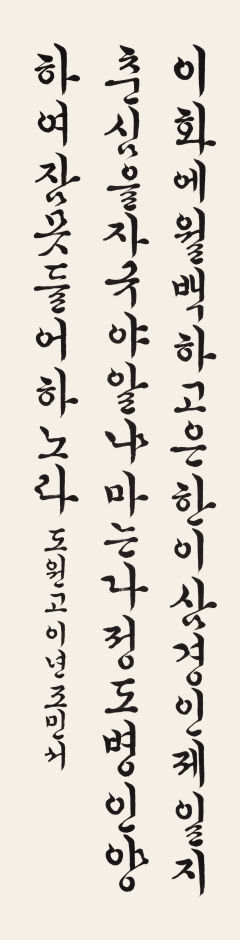 이화에월백하고은한이삼경인제일지
춘심을자국야알냐마는다정도병인양
하여잠못들어하노라 도원고이년조민서